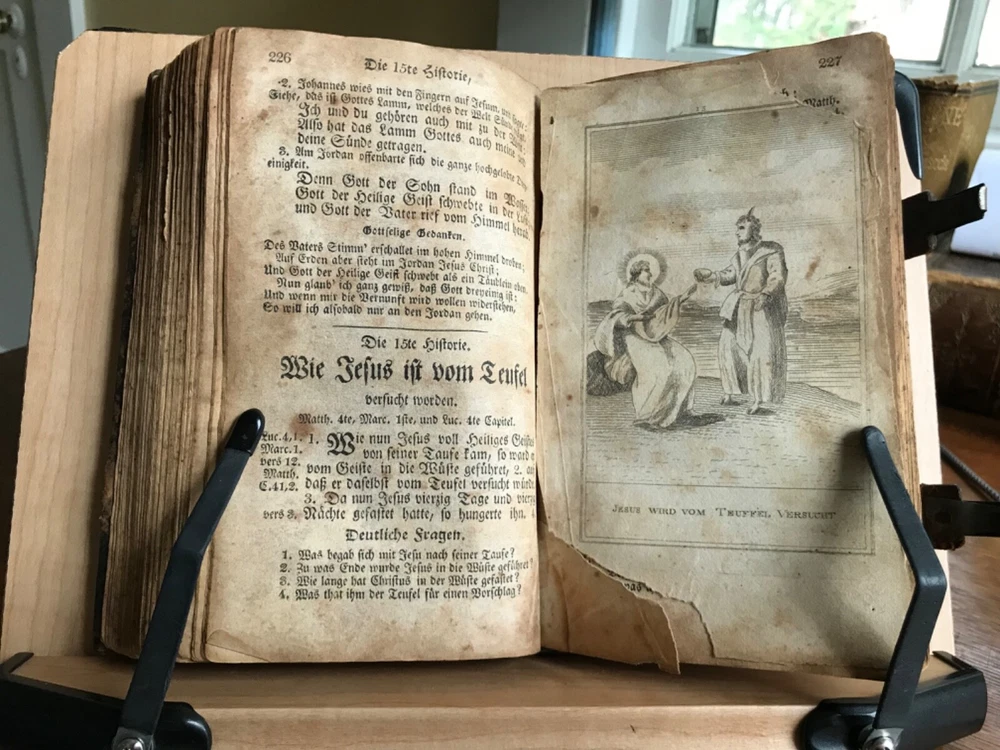 226
Die 15te Historie,
2. Johannes wies mit den Fingern auf Jesum, und sagte:
Siehe, das ist Gottes Lamm, welches der Welt Sünde
Ich und du gehören auch mit zu der
Also hat das Lamm Gottes auch meine und
deine Sünde getragen.
3. Am Jordan offenbarte sich die ganze hochgelobte
einigkeit.
Denn Gott der Sohn stand im Wasser,
Gott der Heilige Geist schwebte in der Luft,
und Gott der Vater rief vom Himmel herab.
Gottselige Gedanken.
Des Vaters Stimm' erschallet im hohen Himmel droben;
Auf Erden aber steht im Jordan Jesus Christ;
Und Gott der Heilige Geist schwebt als ein Täublein oben.
Nun glaub' ich ganz gewiß, daß Gott dreyeinig ist:
Und wenn mir die Vernunft wird wollen widerstehen,
So will ich alsobald nur an den Jordan gehen.
Die 15te Historie.
Wie Jesus ist vom Teufel
versucht worden.
Matth. 4te, Marc. 1ste, und Luc. 4te Capitel.
Luc.4,1. 1. Wie nun Jesus voll Heiliges Geistes
Marc.1. von seiner Taufe kam, so ward er
vers 12. vom Geiste in die Wüste geführet, 2. auf
Matth.
C.41,2. daß er daselbst vom Teufel versucht würde.
3. Da nun Jesus vierzig Tage und vierzig
vers 3. Nächte gefastet hatte, so hungerte ihn. 4.
Deutliche Fragen.
1. Was begab sich mit Jesu nach seiner Taufe?
2. Zu was Ende wurde Jesus in die Wüste geführet?
3. Wie lange hat Christus in der Wüste gefastet?
4. Was that ihm der Teufel für einen Vorschlag?
227
Matth.
15
JESUS WIRD VOM TEUFFEL VERSUCHT